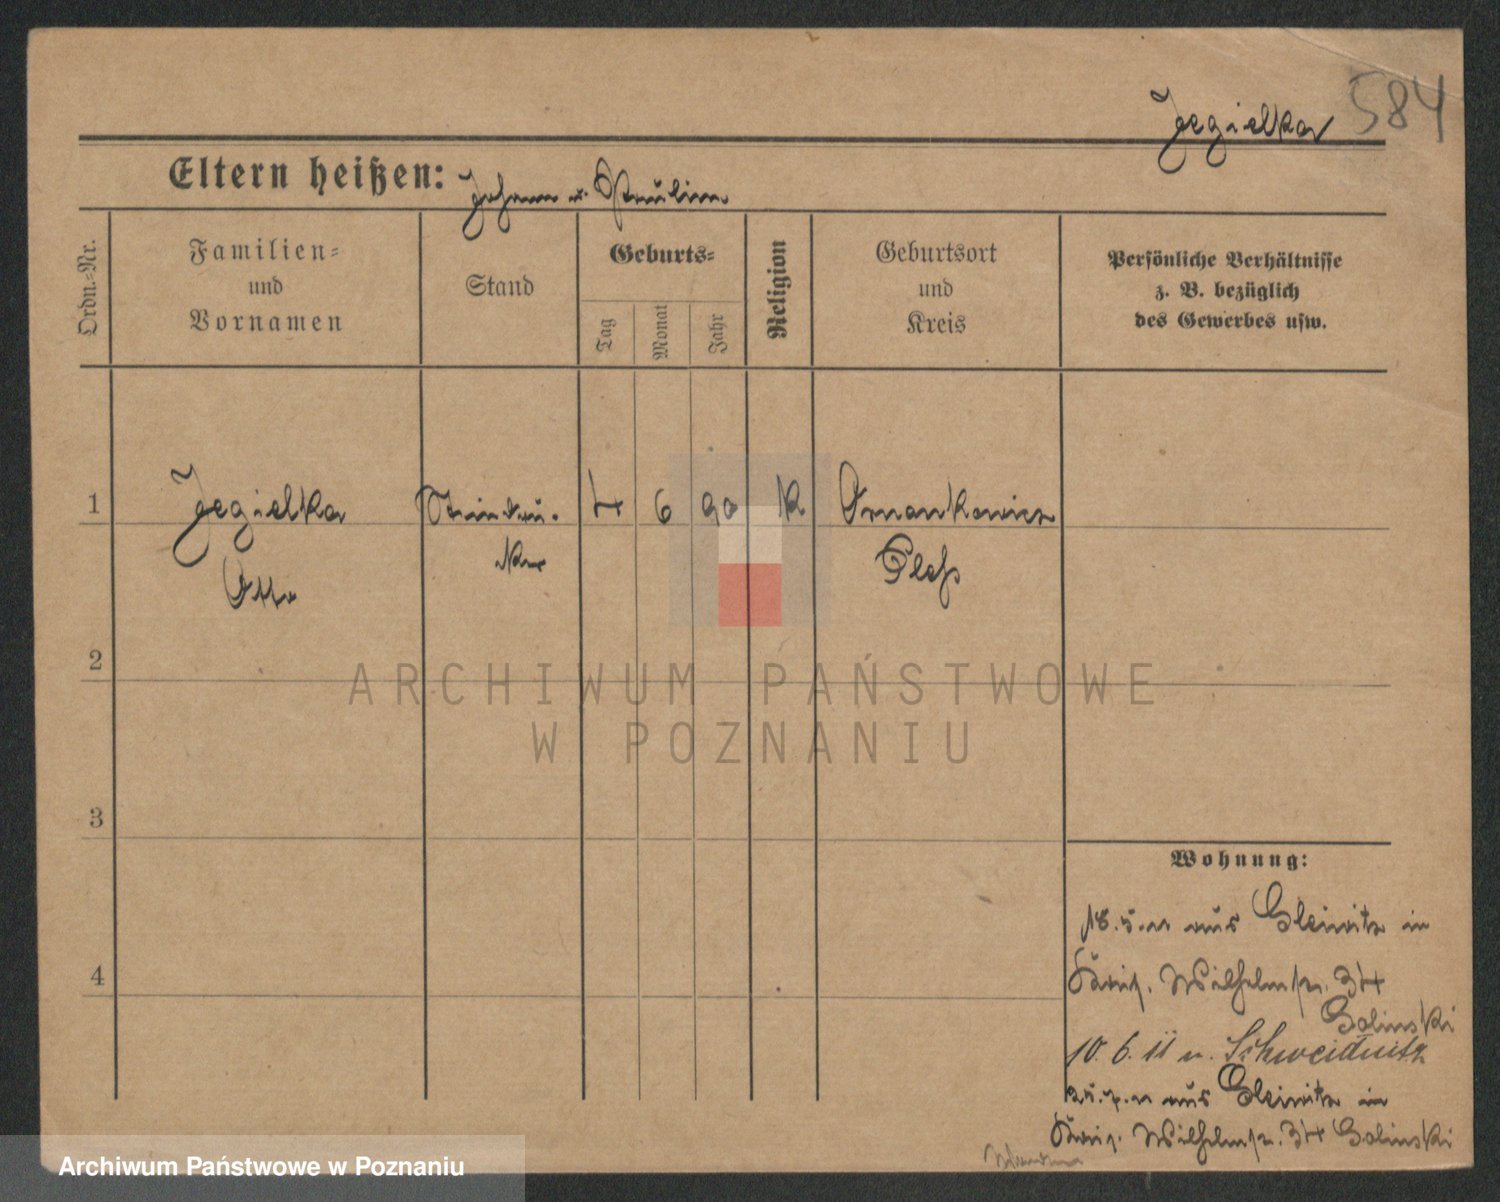 Jegielka 584
Eltern heißen: Johann u. Paulina
Ordn.-Nr.
Familien-
und
Vornamen
Stand
Geburts-
Tag
Monat
Jahr
Religion
Geburtsort
und
Kreis
Persönliche Verhältnisse
z. B. bezüglich
des Gewerbes usw.
1 Jegielka 4 6 90 K Ornontowicz
Otto
Pleß
2
ARCHIWUM PAŃSTWOWE
W POZNANIU
3
4
Wohnung:
18.5.11 aus Gleiwitz in
Wilhelmstr. 34
Golinski
10.6.11 n. Schweidnitz
aus Gleiwitz in
Wilhelmstr. 34 Golinski
Archiwum Państwowe w Poznaniu